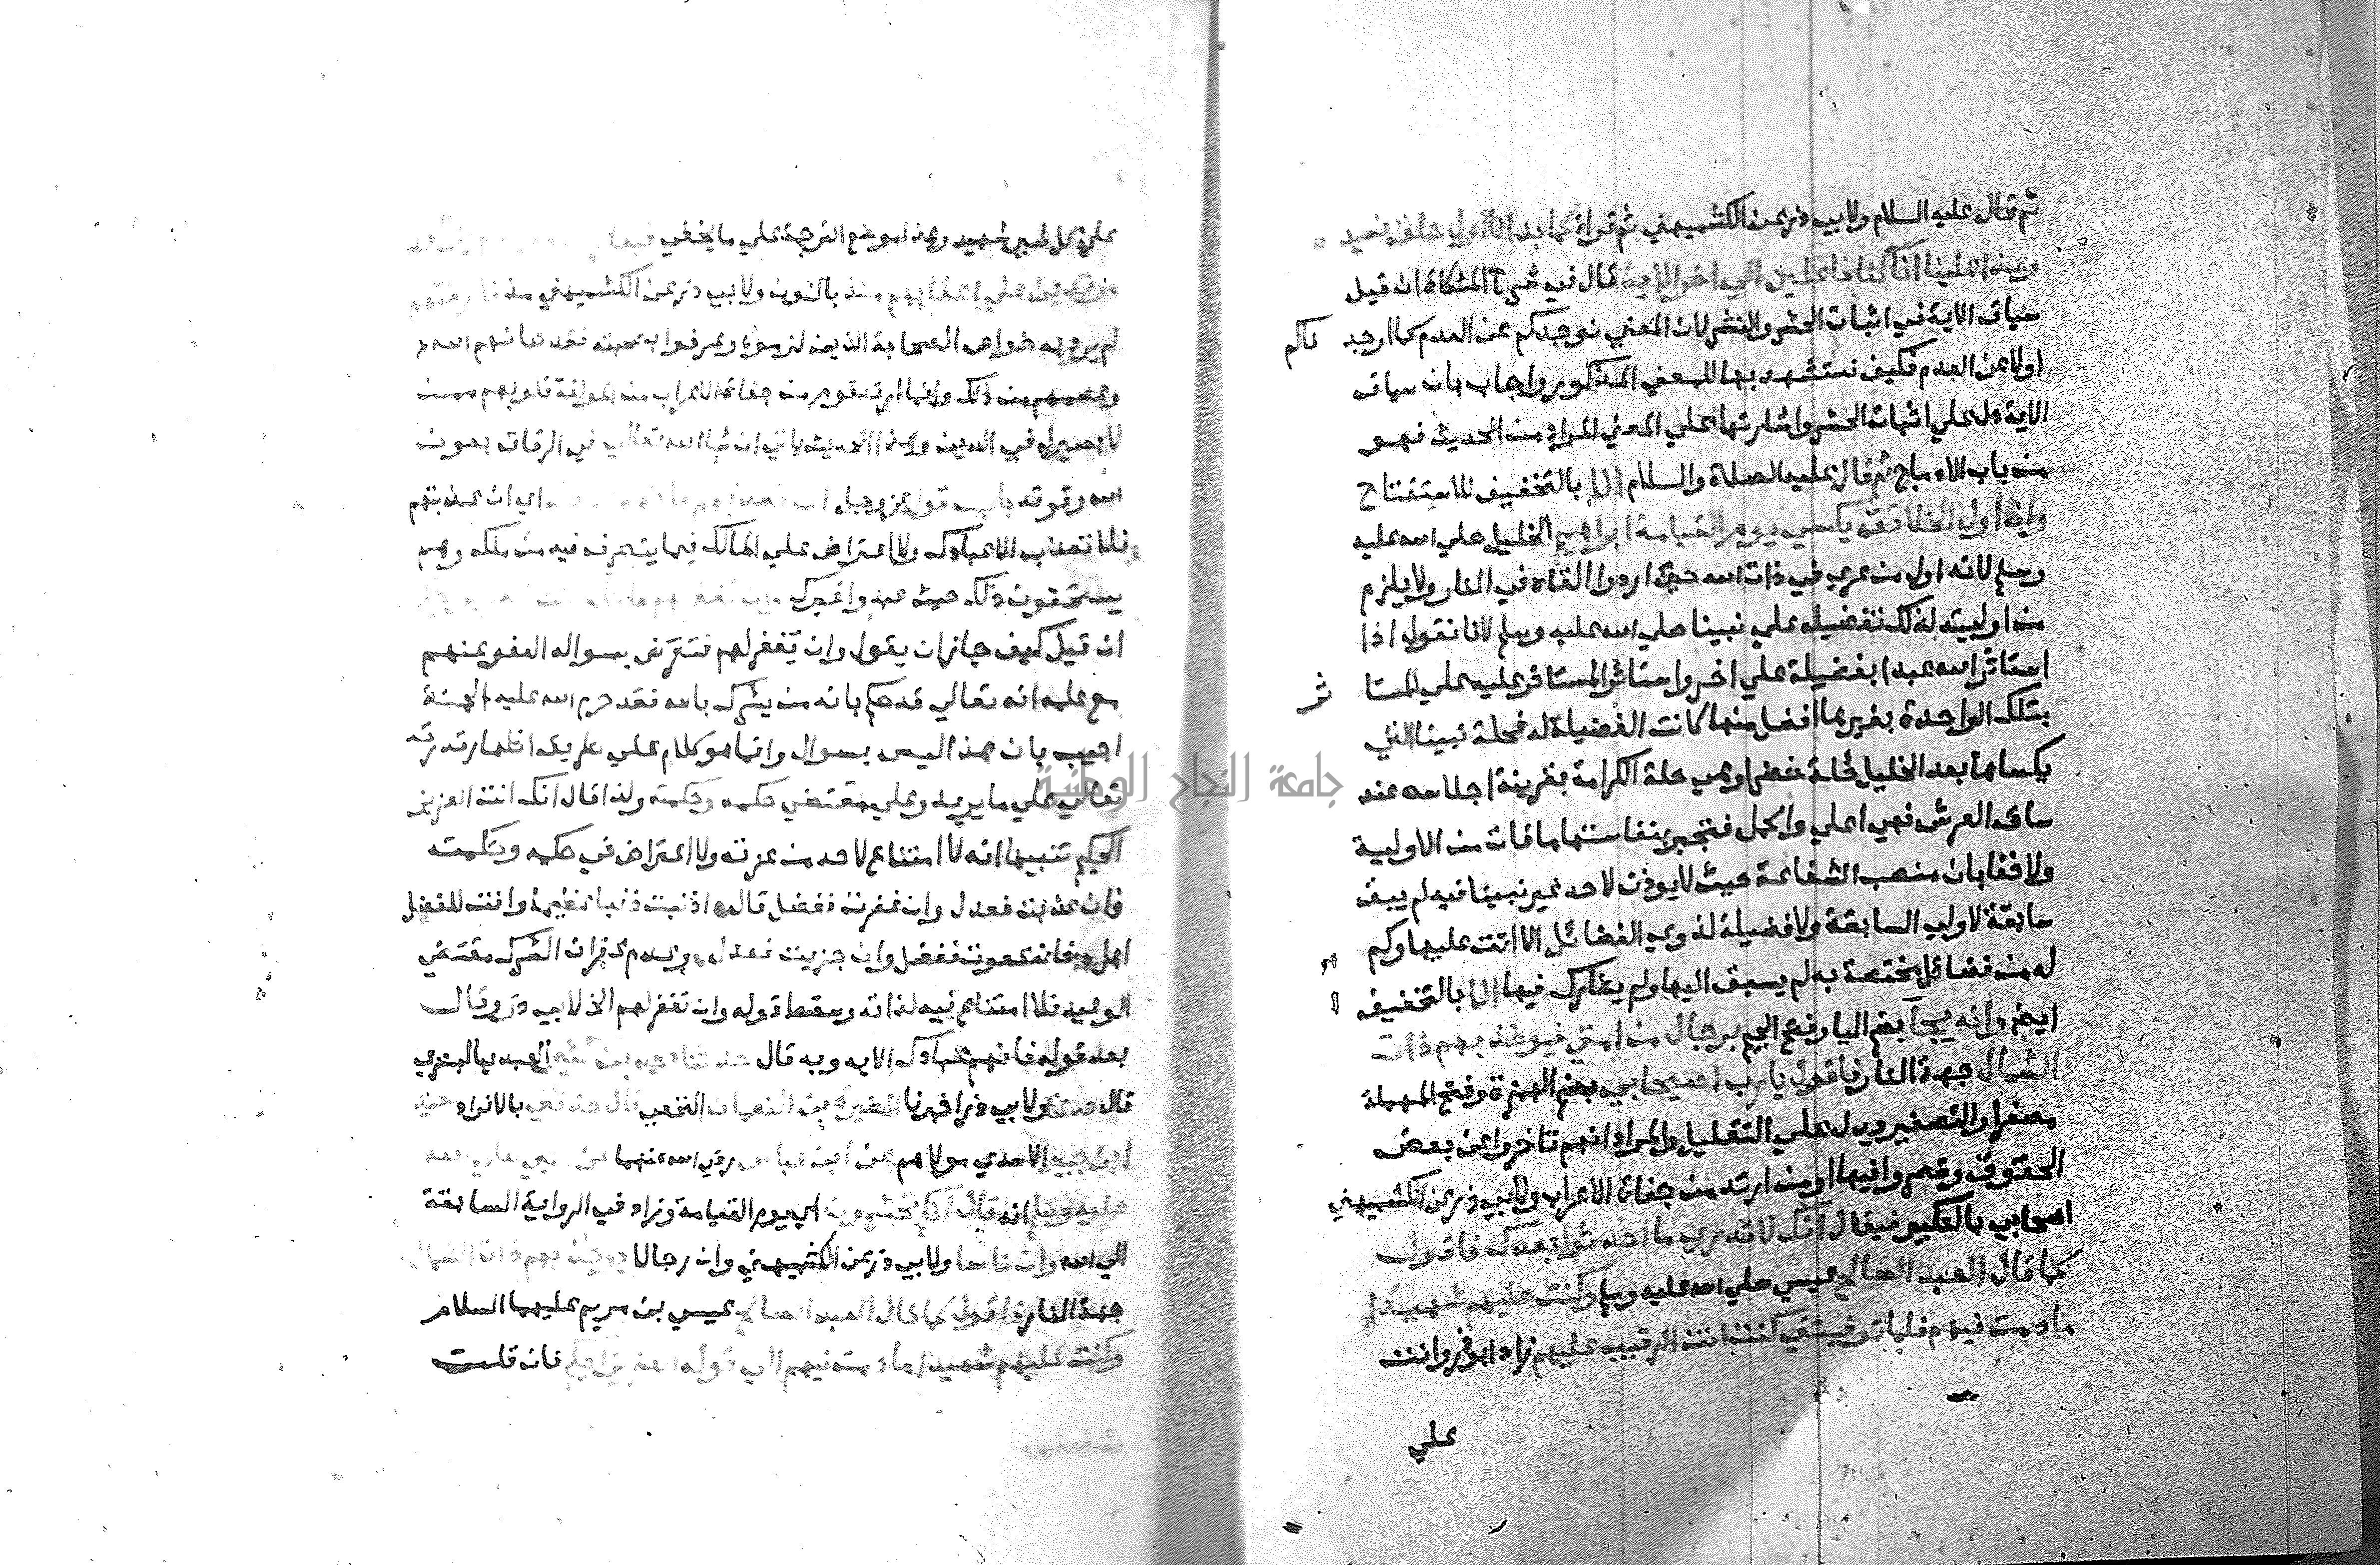 ثم قال عليه السلام ولابي ذر عن الكشميهني ثم قراة كما بدانا اول خلق نعيده
وعدا علينا انا كنا فاعلين الي اخر الاية قال في شرح المشكاة ان قيل
سياق الاية في اثبات الحشر والنشر لان المعني نوجدكم عن العدم كما اوجد ناكم
اولا عن العدم فكيف نستشهد بها للمعني المذكور واجاب بان سياق
الاية دل علي اثبات الحشر واشارتها علي المعني المراد من الحديث فهو
من باب الادماج ثم قال عليه الصلاة والسلام الا بالتخفيف للاستفتاح
وان اول الخلائق يكسي يوم القيامة ابراهيم الخليل صلي الله عليه
وسلم لانه اول من عري في ذات الله حين ارادوا القاه في النار ولا يلزم
من اوليته لذلك تفضيله علي نبينا صلي الله عليه وسلم لانا نقول اذا
استاثر الله عبدا بفضيلة علي اخر واستاثر المستاثر عليه علي المستا ثر
بتلك الواحدة بغيرها افضل منها كانت الفضيلة له فحلة نبينا التي
يكساها بعد الخليل حلة خضرا وهي حلة الكرامة بقرينة اجلاسه عند
ساق العرش فهي اعلي واكمل فتجبر بنفاستها ما فات من الاولية
ولا خفا بان منصب الشفاعة حيث لا يوذن لاحد غير نبينا فيه لم يبق
سابقة لاولي السابقة ولا فضيلة لذوي الفضائل الا اتت عليها وكم
له من فضائل مختصة به لم يسبق اليها ولم يشارك فيها الا بالتخفيف
ايضا وانه يجآ بضم اليا وفتح الجيم برجال من امتي فيوخذ بهم ذات
الشمال جهة النار فاقول يا رب اصيحابي بضم الهمزة وفتح المهملة
مصغرا والتصغير يدل علي التقليل والمراد انهم تاخروا عن بعض
الحقوق وقصروا فيها او من ارتد من جفاة الاعراب ولابي ذر عن الكشميهني
اصحابي بالتكبير فيقال انك لا تدري ما احدثوا بعدك فاقول
كما قال العبد الصالح عيسي صلي الله عليه وسلم وكنت عليهم شهيدا
ما دمت فيهم فلما توفيتني كنت انت الرقيب عليهم زاد ابو ذر وانت
علي
علي كل شي شهيد وهذا موضع الترجمة علي ما يخفي فيقال
مرتدين علي اعقابهم منذ بالنون ولابي ذر عن الكشميهني مذ فارقتهم
لم يرد به خواص الصحابة الذين لزموه وعرفوا بصحبته فقد صانهم الله
وعصمهم من ذلك وانما ارتد قوم من جفاة الاعراب من المولفة قلوبهم ممن
لا بصيرة له في الدين وهذا الحديث ياتي ان شا الله تعالي في الرقاق بعون
الله وقوته باب قوله عز وجل ان تعذبهم فانهم اي ان عذبتهم
فلا تعذب الا عبادك ولا اعتراض علي المالك فيما يتصرف فيه من ملكه وهم
يستحقون ذلك حيث عبدوا غيرك وان تغفر لهم
ان قيل كيف جاز ان يقول وان تغفر لهم فتعرض بسواله العفو عنهم
مع علمه انه تعالي قد حكم بانه من يشرك بالله فقد حرم الله عليه الجنة
اجيب بان هذا ليس بسوال وانما هو كلام علي طريق اظهار قدرته
تعالي علي ما يريد وعلي مقتضي حكمه وحكمته ولذا قال انك انت العزيز
الحكيم تنبيها انه لا امتناع لاحد من عزته ولا اعتراض في حكمه وحكمته
فان عذبت فعدل وان غفرت ففضل قال اذنبت ذنبا عظيما وانت للفضل
اهل فان عفوت ففضل وان جزيت فعدل وعدم غفران الشرك مقتضي
الوعيد فلا امتناع فيه لذاته وسقط قوله وان تغفر لهم الخ لابي ذر وقال
بعد قوله فانهم عبادك الاية وبه قال حدثنا محمد بن كثير العبدي البصري
قال حدثنا ولابي ذر اخبرنا المغيرة بن النعمان النخعي قال حدثني بالافراد سعيد
ابن جبير الاسدي مولاهم عن ابن عباس رضي الله عنهما عن النبي صلي الله
عليه وسلم انه قال انكم تحشرون اي يوم القيامة وزاد في الرواية السابقة
الي الله وان ناسا ولابي ذر عن الكشميهني وان رجالا يوخذ بهم ذات الشمال
جهة النار فاقول كما قال العبد الصالح عيسي بن مريم عليهما السلام
وكنت عليهم شهيدا ما دمت فيهم الي قوله العزيز الحكيم فان قلت